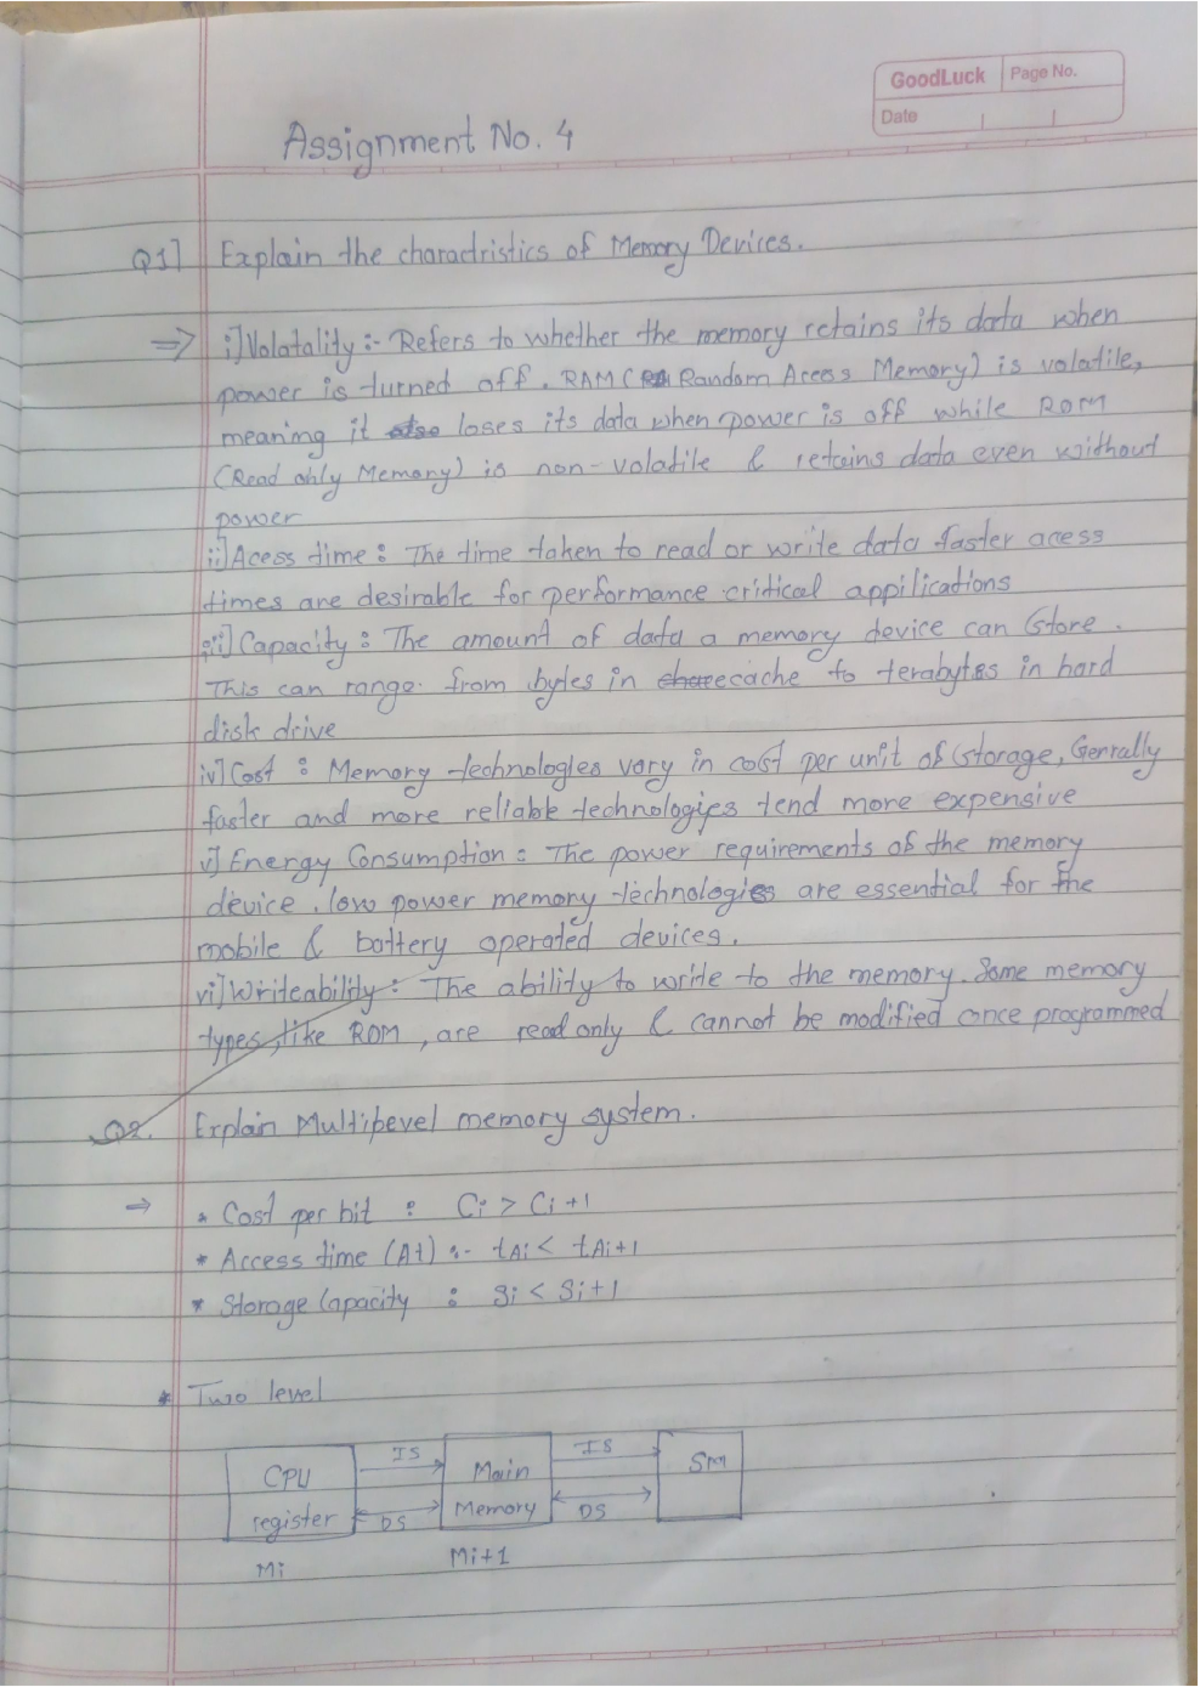 GoodLuck Page No.
Date
Assignment No. 4
Q1] Explain the charactristics of Memory Devices.
⇒ i] Volatality :- Refers to whether the memory retains its data when
power is turned off. RAM ( Random Acess Memory) is volatile,
meaning it loses its data when power is off while ROM
(Read only Memory) is non-volatile & retains data even without
power
ii] Acess time : The time taken to read or write data faster acess
times are desirable for performance critical appilications
iii] Capacity : The amount of data a memory device can store.
This can range from bytes in cache to terabytes in hard
disk drive
iv] Cost : Memory technologies vary in cost per unit of storage, Genrally
faster and more reliable technologies tend more expensive
v] Energy Consumption : The power requirements of the memory
device. low power memory technologies are essential for the
mobile & battery operated devices.
vi] Writeability : The ability to write to the memory. Some memory
types, like ROM, are read only & cannot be modified once programmed
Q2. Explain Multilevel memory system.
⇒ * Cost per bit : Ci > Ci+1
* Access time (At) :- tAi < tAi+1
* Storage Capacity : Si < Si+1
* Two level
CPU register IS DS Main Memory IS DS SM
Mi Mi+1